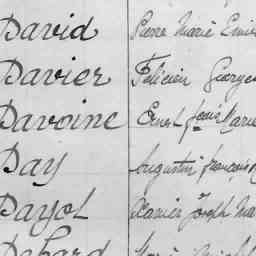 David Pierre Marie Emile
Davier Félicien Georges
Davoine Ernest Louis Marie
Day Augustin François
Dayot Xavier Joseph Mar
Debard Marie